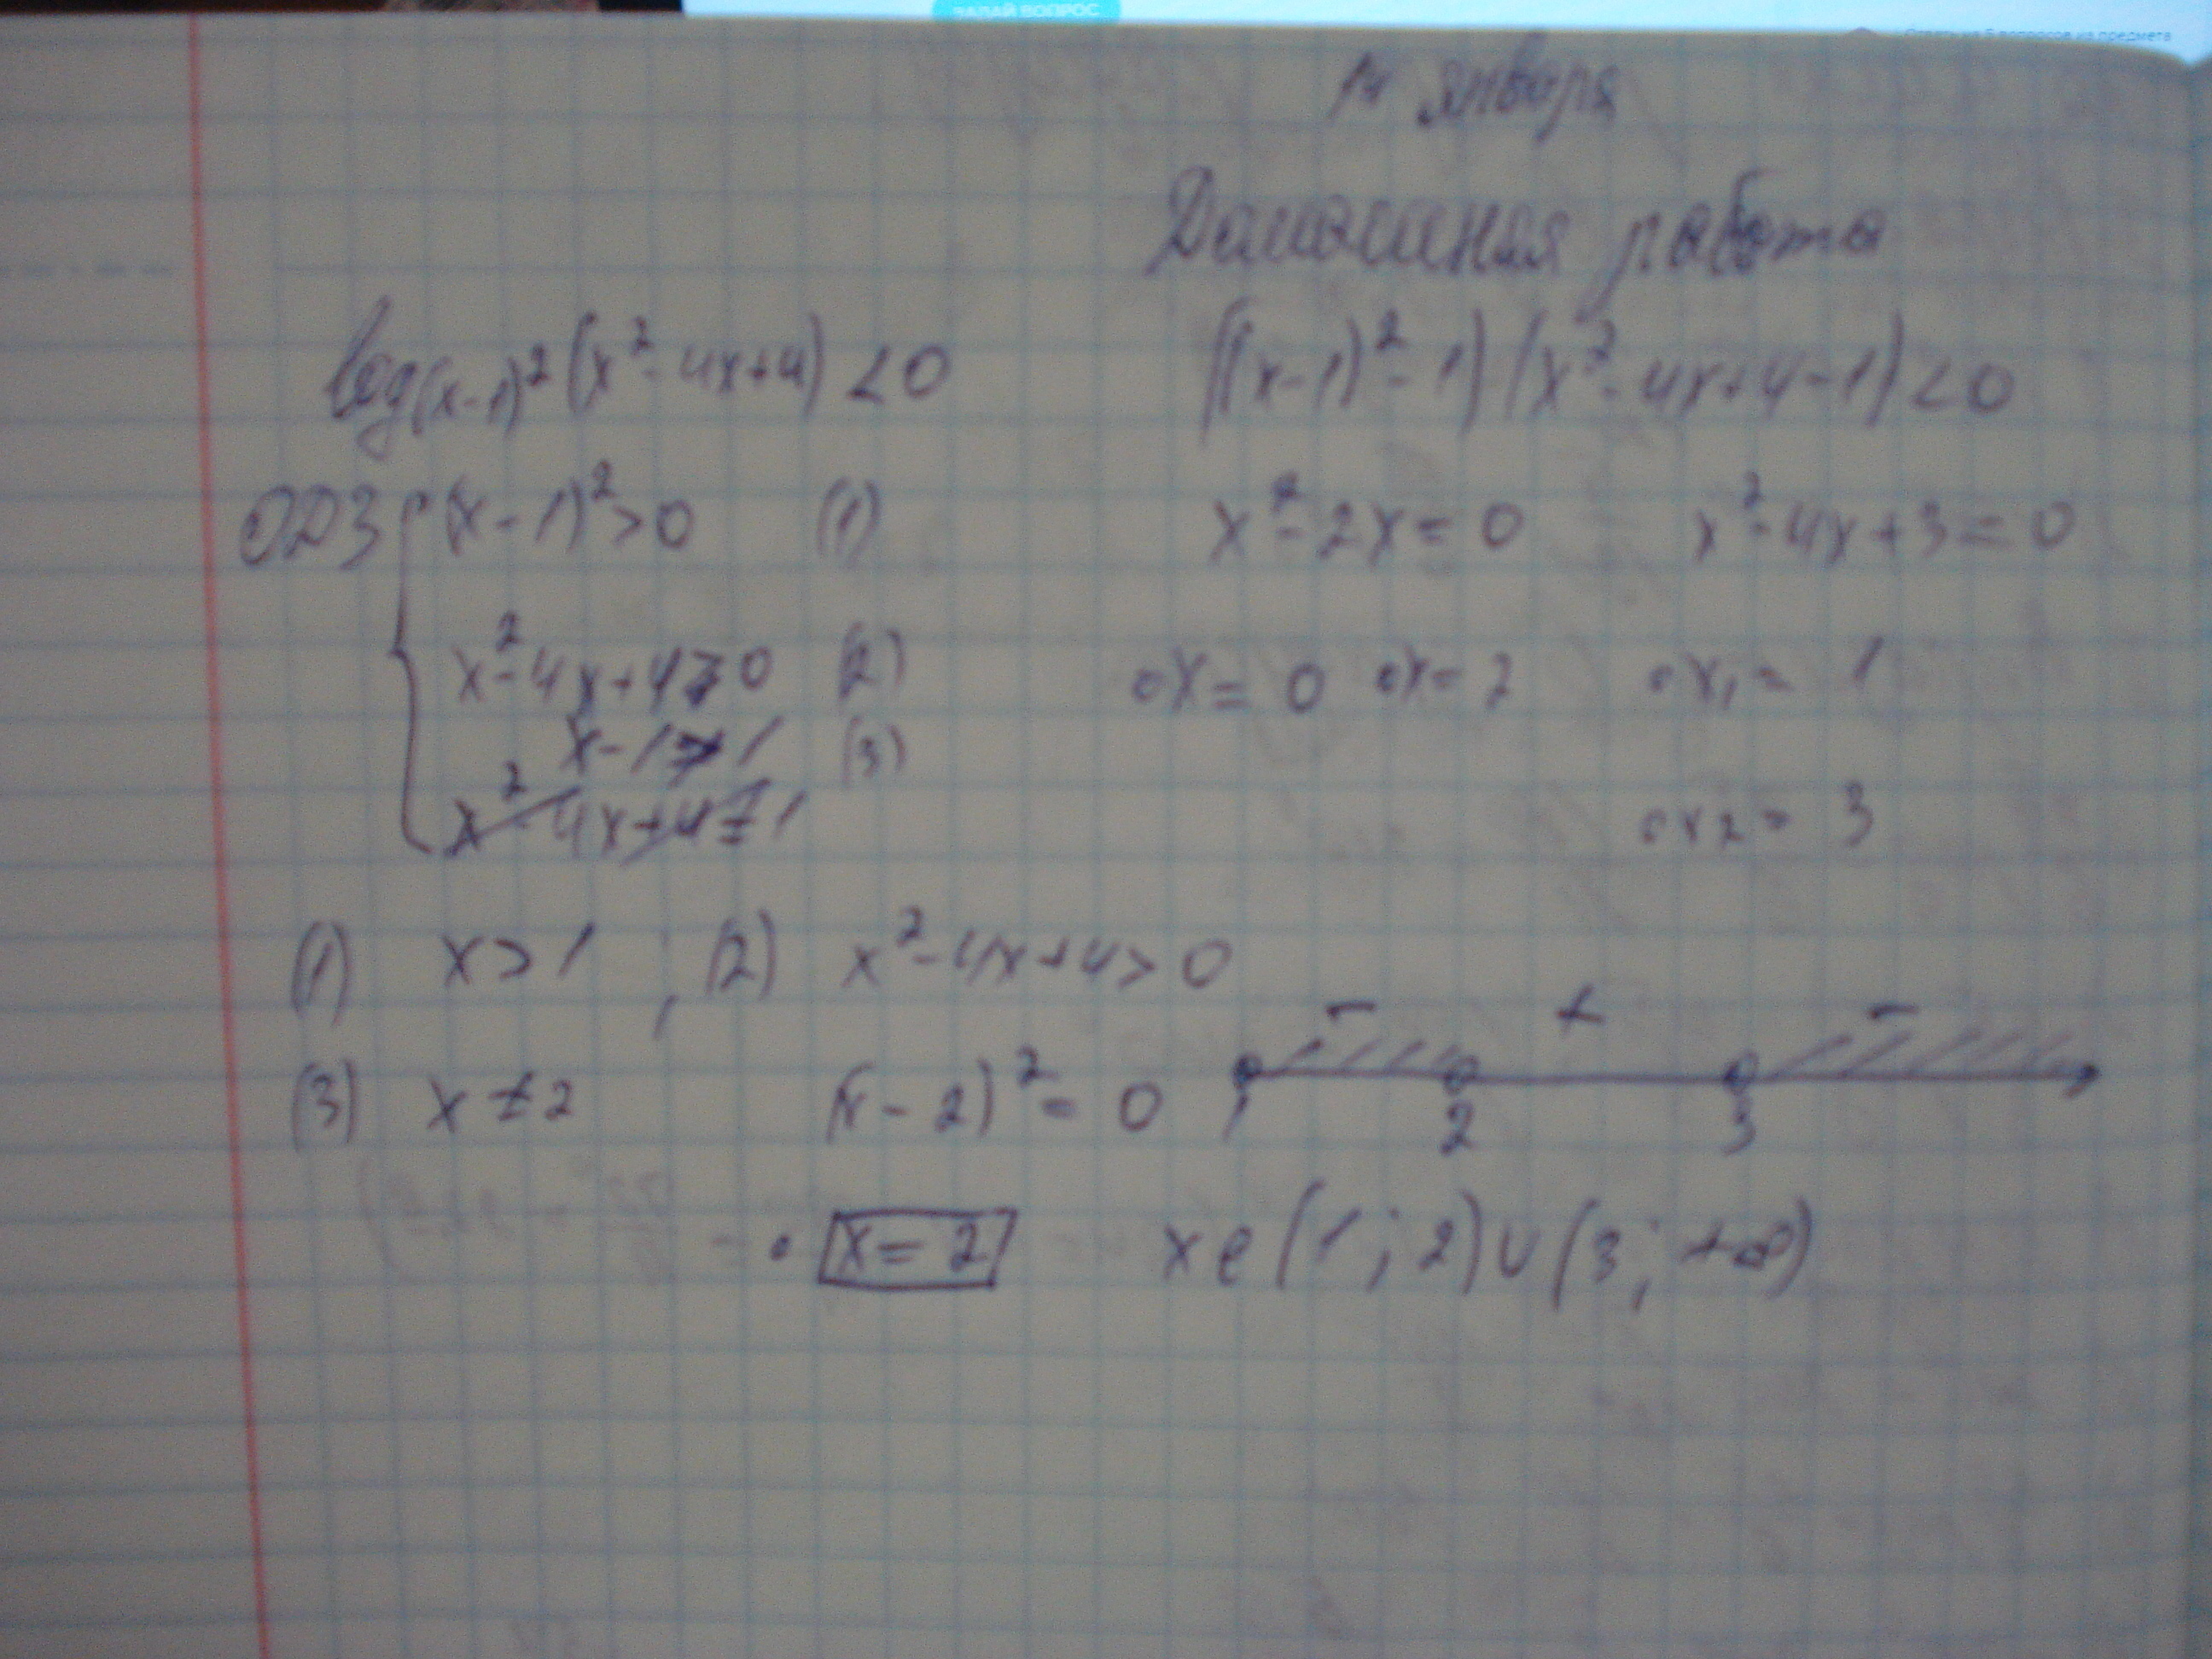 ЗАДАЙ ВОПРОС
Ответь на 5 вопросов из предмета
14 января
Домашняя работа
log(x-1)² (x²-4x+4) < 0
((x-1)²-1)(x²-4x+4-1)<0
ОДЗ { (x-1)²>0 (1)
x²-4x+4>0 (2)
x-1≠1 (3)
x²-4x+4≠1
x²-2x=0 x²-4x+3=0
x=0 x=2 x₁=1
x2=3
(1) x>1 ; (2) x²-4x+4>0
(3) x≠2 (x-2)²=0
x=2
- + -
1 2 3
x∈(1;2)∪(3;+∞)